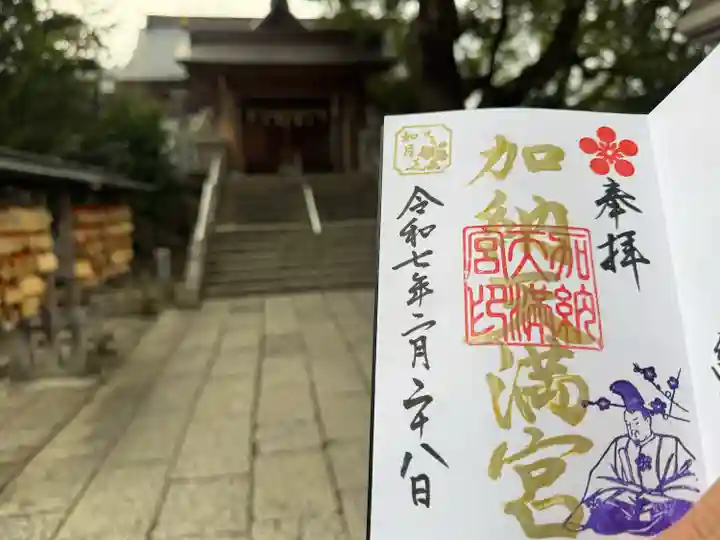 奉拝
加納天満宮
加納
天満
宮印
如月
令和七年二月二十八日